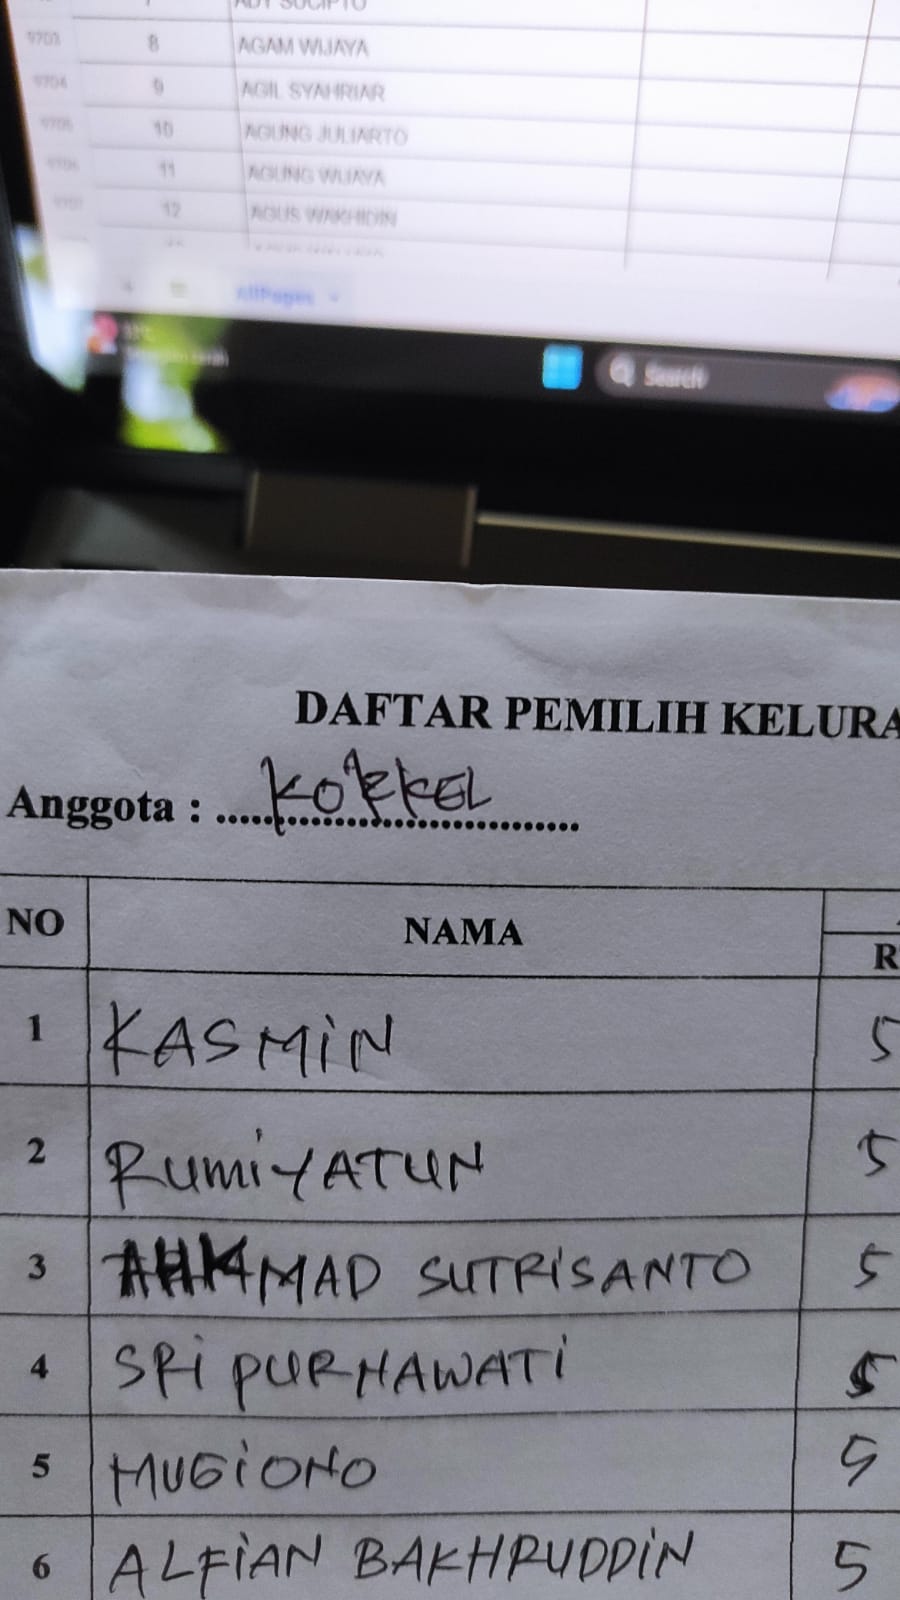 ADY SUCIPTO
9703 8 AGAM WIJAYA
9704 9 AGIL SYAHRIAR
9705 10 AGUNG JULIARTO
9706 11 AGUNG WIJAYA
9707 12 AGUS WAKHIDIN
AllPages
Search
DAFTAR PEMILIH KELURA
Anggota :
NO NAMA R
1 KASMiN 5
2 RumiYATUN 5
3 AHMAD SUTRiSANTO 5
4 SRi PURNAWATi 5
5 MUGiONO 5
6 ALFiAN BAKHRUDDiN 5